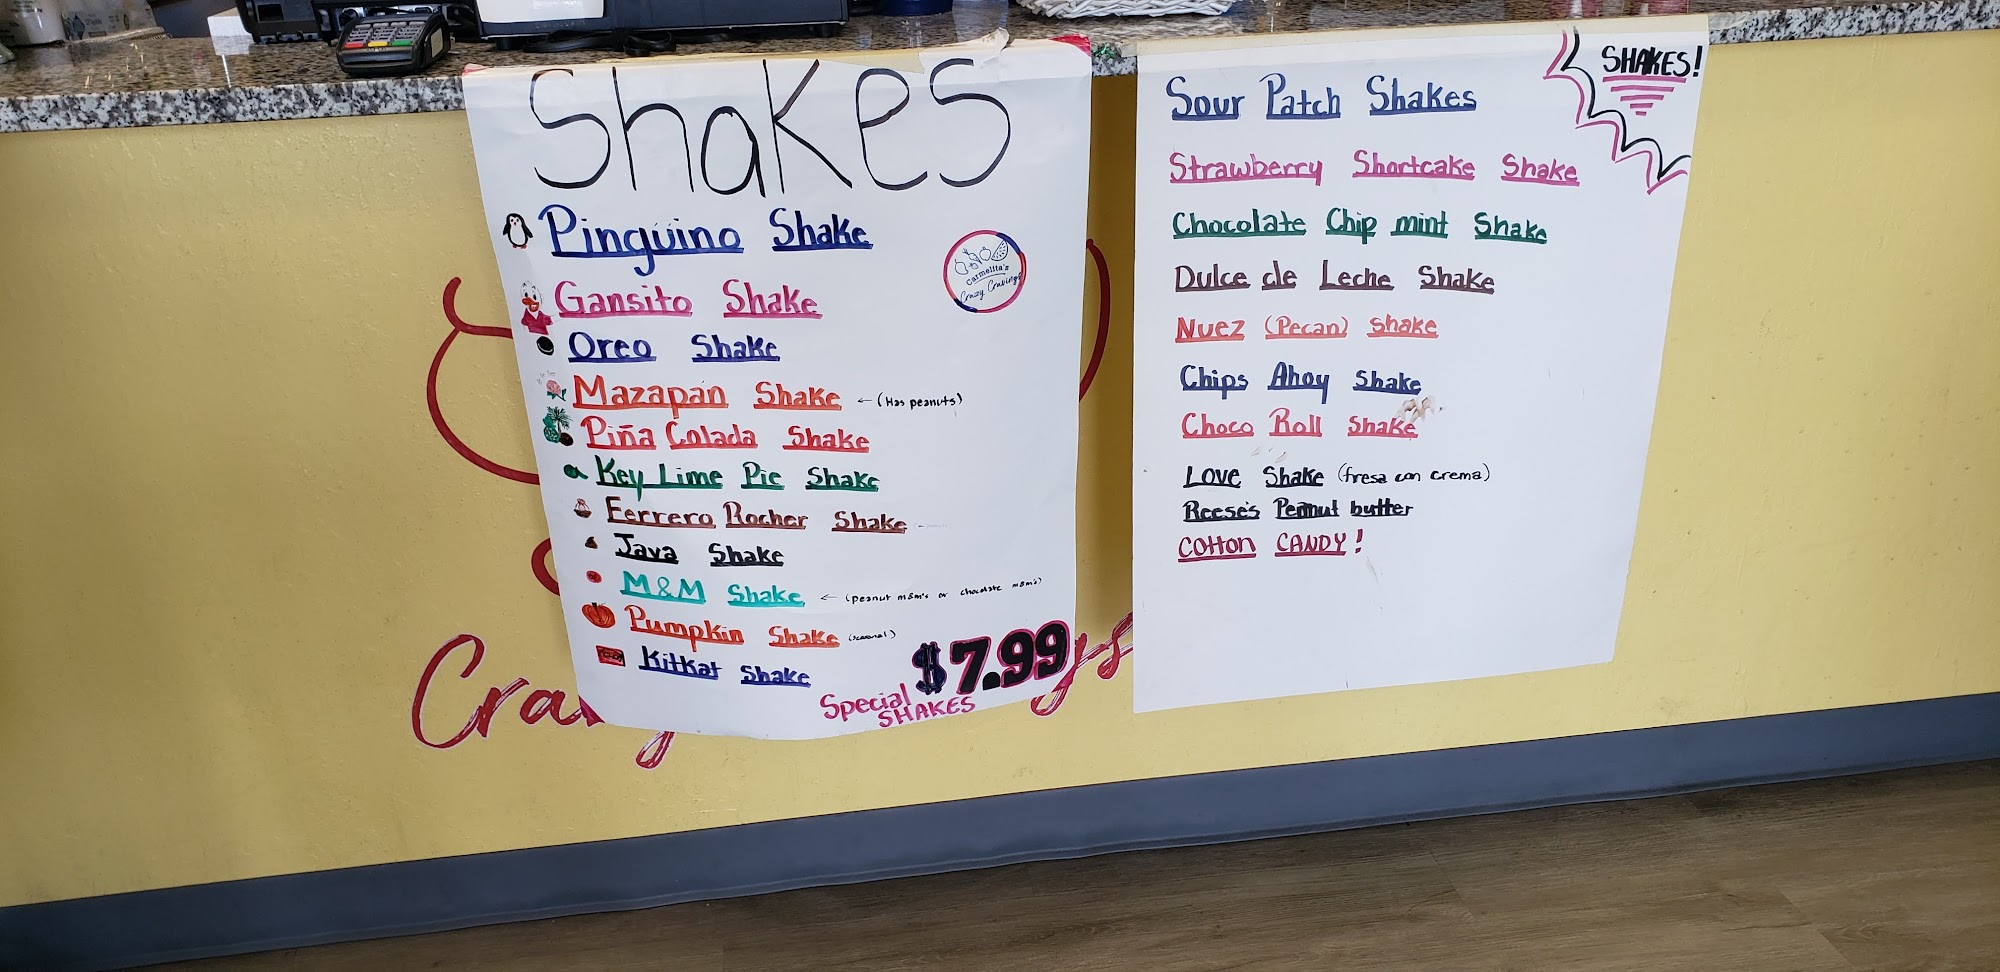 Shakes
Pingüino Shake
Carmelita's
Crazy Cravings
Gansito Shake
Oreo Shake
Mazapan Shake ← (Has peanuts)
Piña Colada Shake
Key Lime Pie Shake
Ferrero Rocher Shake
Java Shake
M&M Shake ← (peanut m&m's or chocolate m&m's)
Pumpkin Shake (seasonal)
KitKat Shake
$7.99
Special
SHAKES
SHAKES!
Sour Patch Shakes
Strawberry Shortcake Shake
Chocolate Chip mint Shake
Dulce de Leche Shake
Nuez (Pecan) Shake
Chips Ahoy Shake
Choco Roll Shake
Love Shake (fresa con crema)
Reese's Peanut butter
COTTON CANDY!
Cra
gs